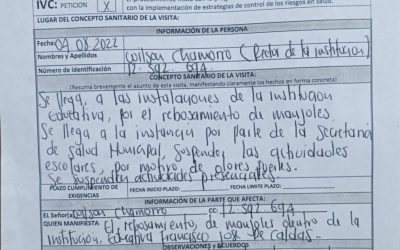 IVC: PETICION X
con la implementación de estrategias de control de los riesgos en salud.
LUGAR DEL CONCEPTO SANITARIO DE LA VISITA:
INFORMACIÓN DE LA PERSONA
Fecha: 04.08.2022
Nombres y Apellidos Wilson Chamorro (Rector de la institucion)
Número de identificación 12.592.694
CONCEPTO SANITARIO DE LA VISITA:
(Resuma brevemente el asunto de esta visita, manifestando claramente los hechos en forma concreta)
Se llega a las instalaciones de la institucion
Educativa, por el rebosamiento de manjoles.
Se llega a la instancia por parte de la Secretaria
de salud Municipal, Suspender las actividades
escolares, por motivo de olores fuertes.
Se suspenden actividades presenciales.
PLAZO CUMPLIMIENTO DE EXIGENCIAS
FECHA INICIO PLAZO:
FECHA LIMITE PLAZO:
INFORMACIÓN DE LA PARTE QUE AFECTA:
El Señor(a) Wilson Chamorro cc 12.592.694
Quien Manifiesta: El rebosamiento de manjoles dentro de la
Institucion Educativa Francisco Jose de Caldas.
OBSERVACIONES Y ACUERDOS